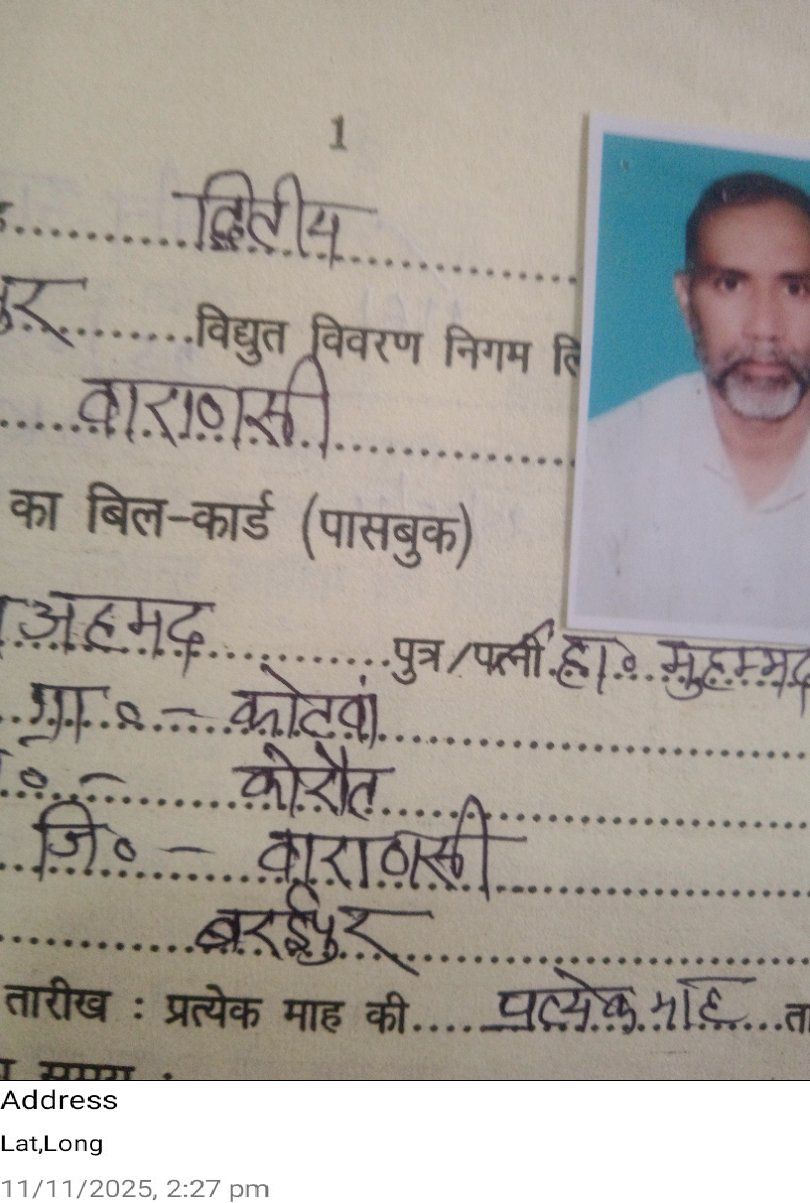 1
द्वितीय
विद्युत विवरण निगम लि
वाराणसी
का बिल-कार्ड (पासबुक)
अहमद पुत्र/पत्नी हा० मुहम्मद
ग्रा० - कोटवां
कोरौत
जि० - वाराणसी
बरईपुर
तारीख : प्रत्येक माह की प्रत्येक माह ता
Address
Lat,Long
11/11/2025, 2:27 pm